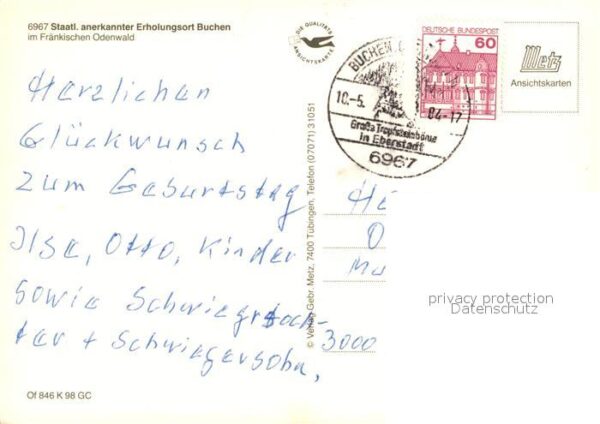 6967 Staatl. anerkannter Erholungsort Buchen
im Fränkischen Odenwald
DIE QUALITÄTS
ANSICHTSKARTE
Herzlichen
Glückwunsch
zum Geburtstag
Ilse, Otto, Kinder
sowie Schwiegertoch-
ter + Schwiegersohn,
Of 846 K 98 GC
© Verlag Gebr. Metz, 7400 Tübingen, Telefon (07071) 31051
BUCHEN
10.-5. 84-17
Große Tropfsteinhöhle
in Eberstadt
6967
DEUTSCHE BUNDESPOST
60
Metz
Ansichtskarten
3000
privacy protection
Datenschutz